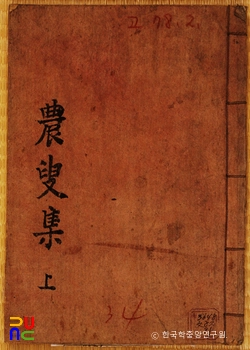 고 78. 2.
農叟集
上
34
ⓒ 한국학중앙연구원